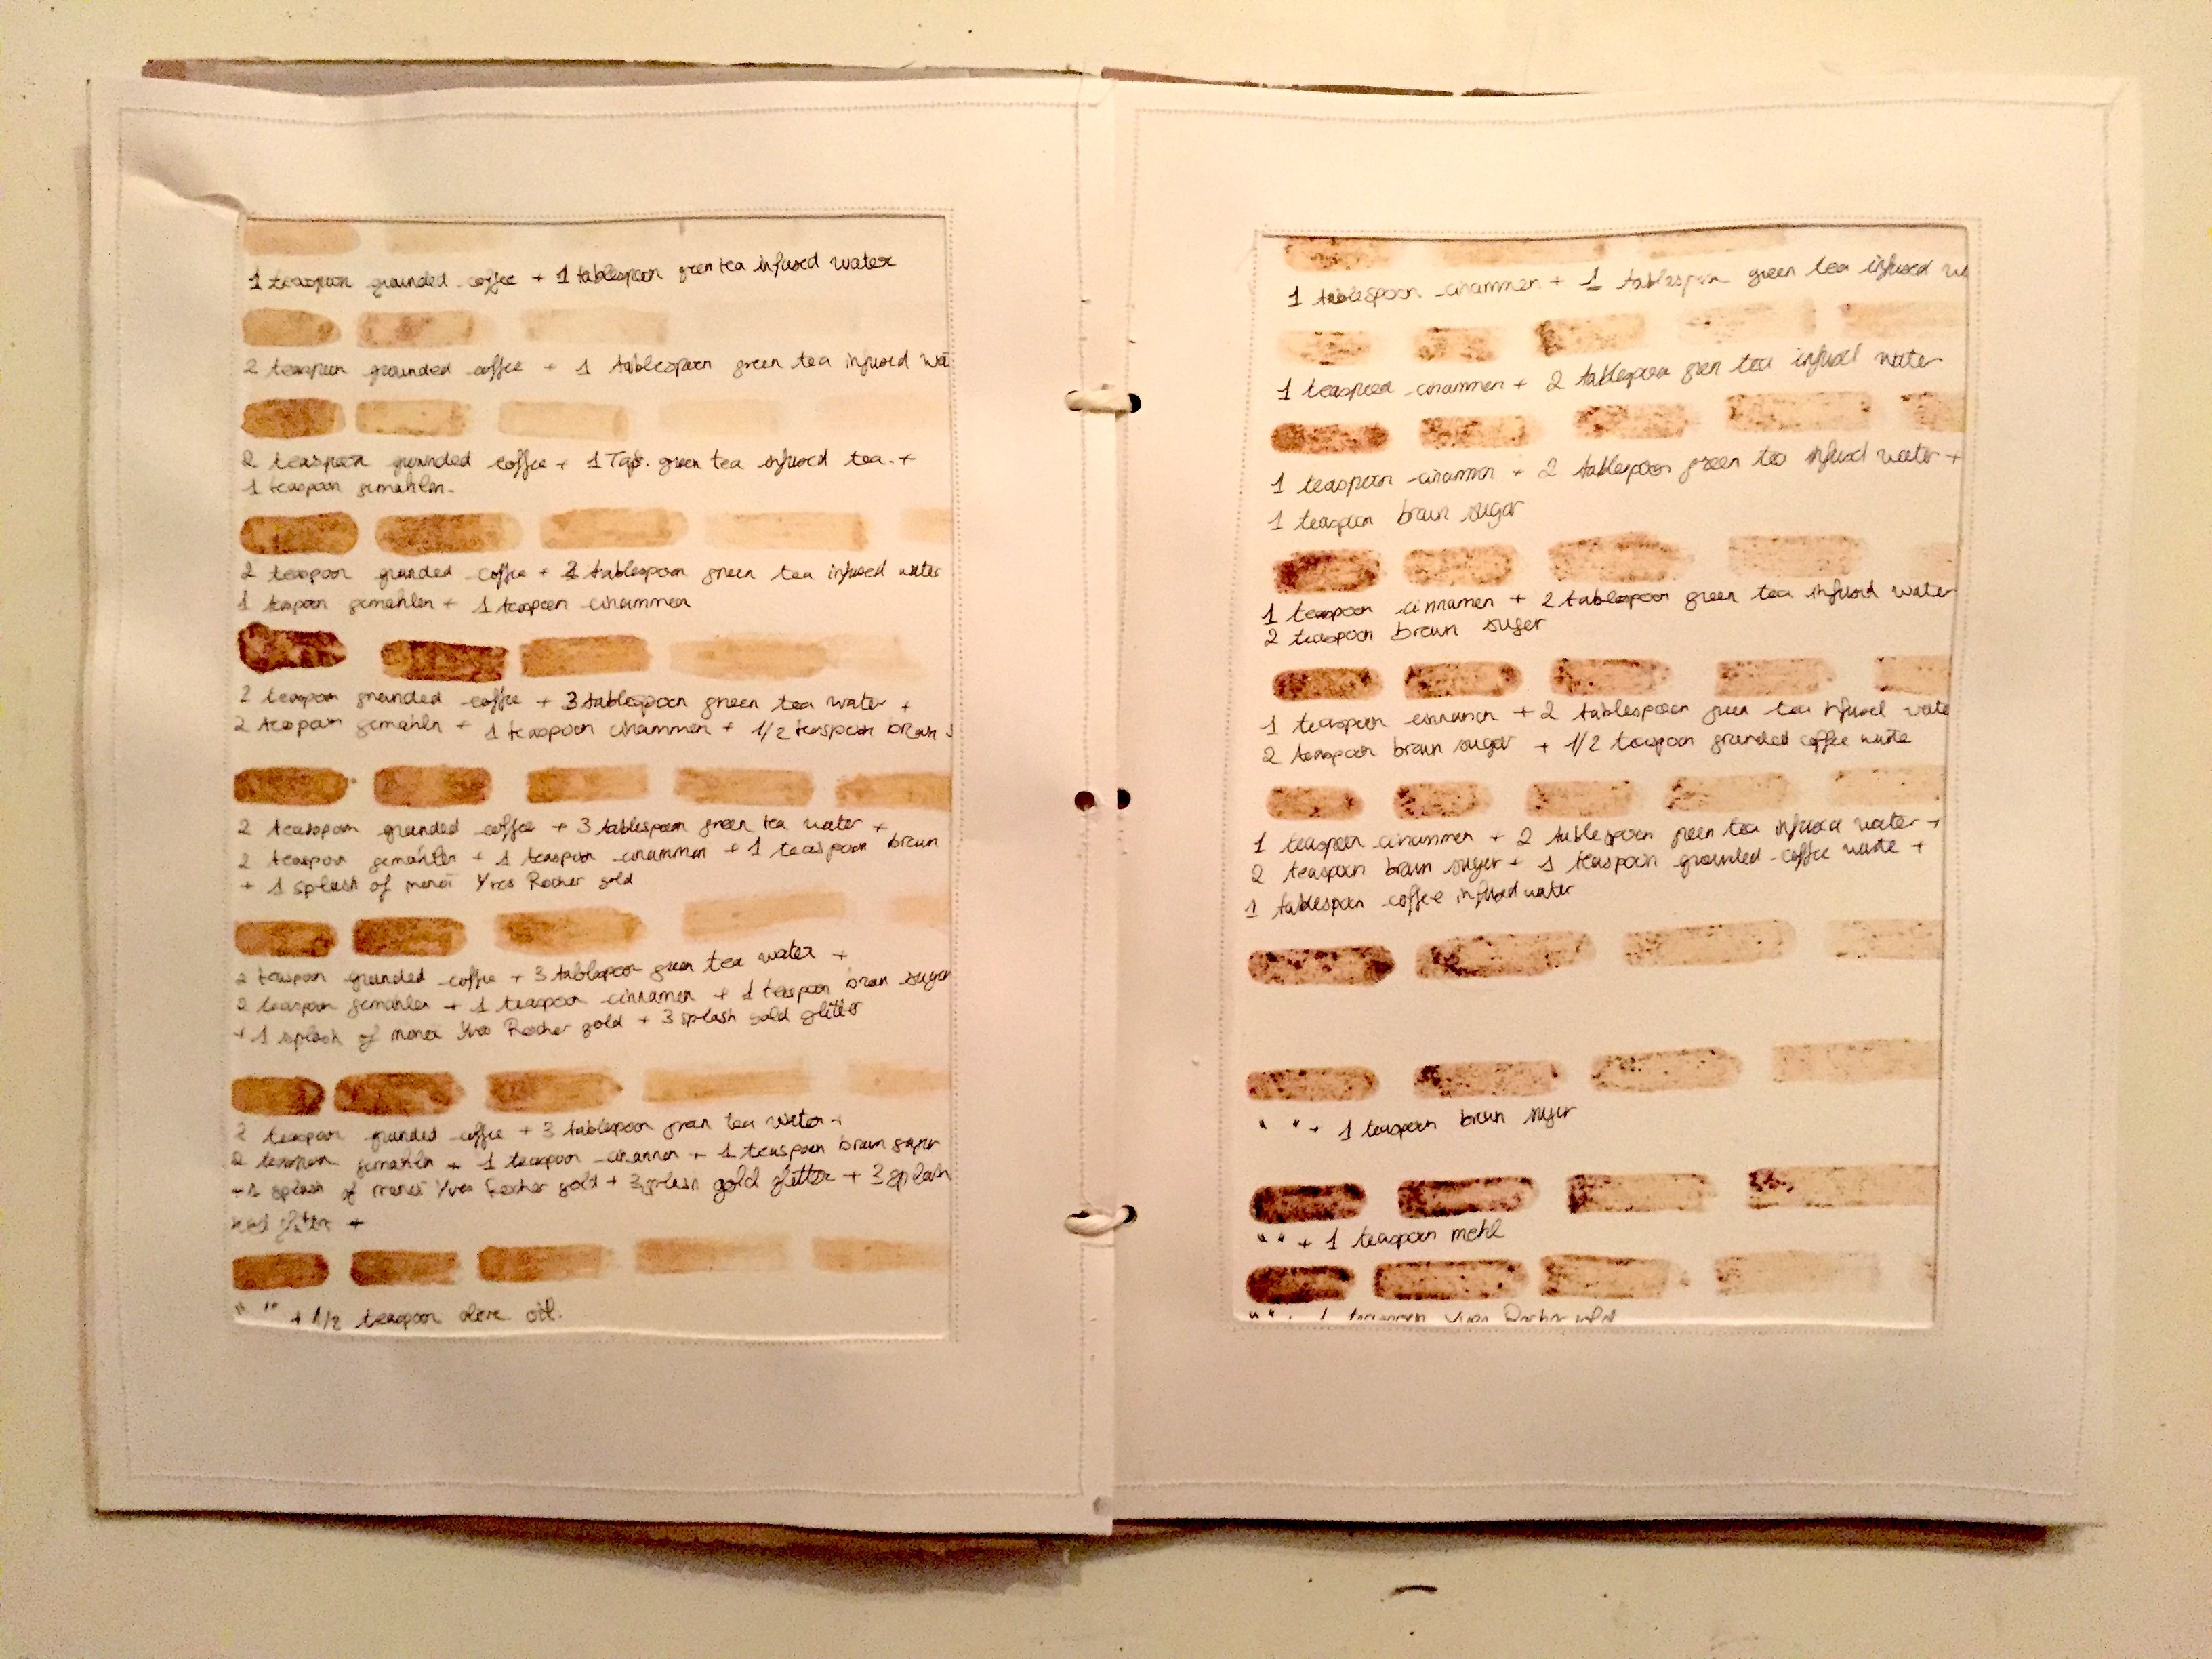 1 teaspoon grounded coffee + 1 tablespoon green tea infused water
2 teaspoon grounded coffee + 1 tablespoon green tea infused wa
2 teaspoon grounded coffee + 1 green tea infused tea. +
1 teaspoon gemahlen
2 teaspoon grounded coffee + 2 tablespoon green tea infused water
1 teaspoon gemahlen + 1 teaspoon cinammen
2 teaspoon grounded coffee + 3 tablespoon green tea water +
2 teaspoon gemahln + 1 teaspoon cinammen + 1/2 teaspoon braun s
2 teaspoon grounded coffee + 3 tablespoon green tea water +
2 teaspoon gemahlen + 1 teaspoon cinammen + 1 teaspoon braun
+ 1 splash of monoï Yves Rocher gold
2 teaspoon grounded coffee + 3 tablespoon green tea water +
2 teaspoon gemahlen + 1 teaspoon cinnamen + 1 teaspoon braun sugar
+ 1 splash of monoï Yves Rocher gold + 3 splash gold glitter
2 teaspoon grounded coffee + 3 tablespoon green tea water +
2 teaspoon gemahln + 1 teaspoon cinammen + 1 teaspoon braun suger
+ 1 splash of monoï Yves Rocher gold + 3 splash gold glitter + 3 splash
glitter +
" " + 1/2 teaspoon olive oil.
1 tablespoon cinammen + 1 tablespoon green tea infused w
1 teaspoon cinammen + 2 tablespoon green tea infused water
1 teaspoon cinammen + 2 tablespoon green tea infused water +
1 teaspoon braun sugar
1 teaspoon cinnamen + 2 tablespoon green tea infused water
2 teaspoon braun suger
1 teaspoon cinnamen + 2 tablespoon green tea infused wate
2 teaspoon braun sugar + 1/2 teaspoon grounded coffee waste
1 teaspoon cinammen + 2 tablespoon green tea infused water +
2 teaspoon braun suger + 1 teaspoon grounded coffee waste +
1 tablespoon coffee infused water
" " + 1 teaspoon braun suger
" " + 1 teaspoon mehl